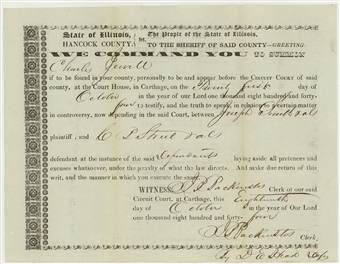 State of Illinois, } ss. The People of the State of Illinois,
HANCOCK COUNTY, TO THE SHERIFF OF SAID COUNTY—GREETING:
WE COMMAND YOU TO SUMMON
Charles
if to be found in your county, personally to be and appear before the CIRCUIT COURT of said
county, at the Court House, in Carthage, on the Twenty first day of
October in the year of our Lord one thousand eight hundred and forty-
four to testify, and the truth to speak, in relation to certain matter
in controversy, now depending in the said Court, between Joseph Smith & als
plaintiff, and C L Street & als
defendant at the instance of the said Defendants laying aside all pretences and
excuses whatsoever, under the penalty of what the law directs. And make due return of this
writ, and the manner in which you execute the same.
WITNESS, J B Backenstos Clerk of our said
Circuit Court, at Carthage, this Eighteenth
day of October in the year of Our Lord
one thousand eight hundred and forty-four
J B Backenstos Clerk,
By D E Head Dpt